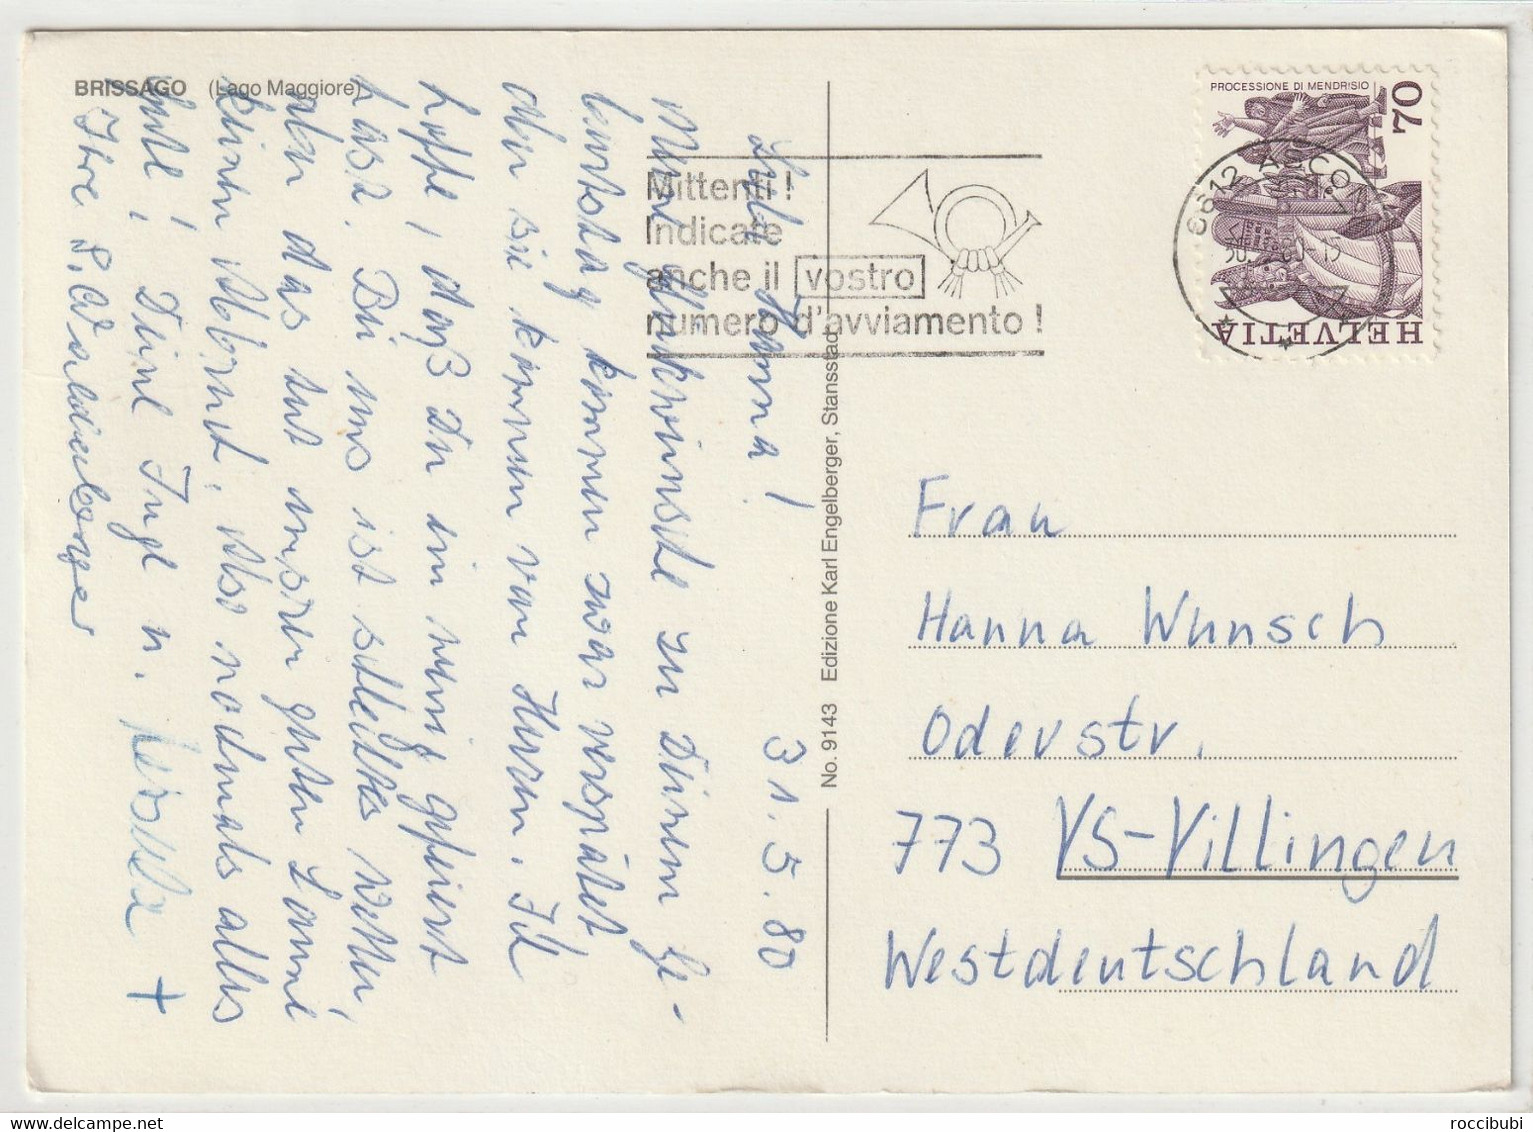 BRISSAGO (Lago Maggiore)
PROCESSIONE DI MENDRISIO
70
HELVETIA
6612 ASCONA
30. 5. 80-15
Mittenti !
Indicate
anche il vostro
numero d'avviamento !
No. 9143 Edizione Karl Engelberger, Stansstad
31.5.80
Liebe Hanna!
Meine Glückwünsche zu Deinem Ge-
burtstag kommen zwar verspätet
aber sie kommen von Herzen. Ich
hoffe, daß Du ein wenig gefeiert
hast. Bei uns ist schlechtes Wetter,
aber das tut unserer guten Laune
keinen Abbruch. Also nochmals alles
Gute! Deine Inge u.
Ihre
Frau
Hanna Wunsch
Oderstr.
773 VS-Villingen
Westdeutschland
roccibubi